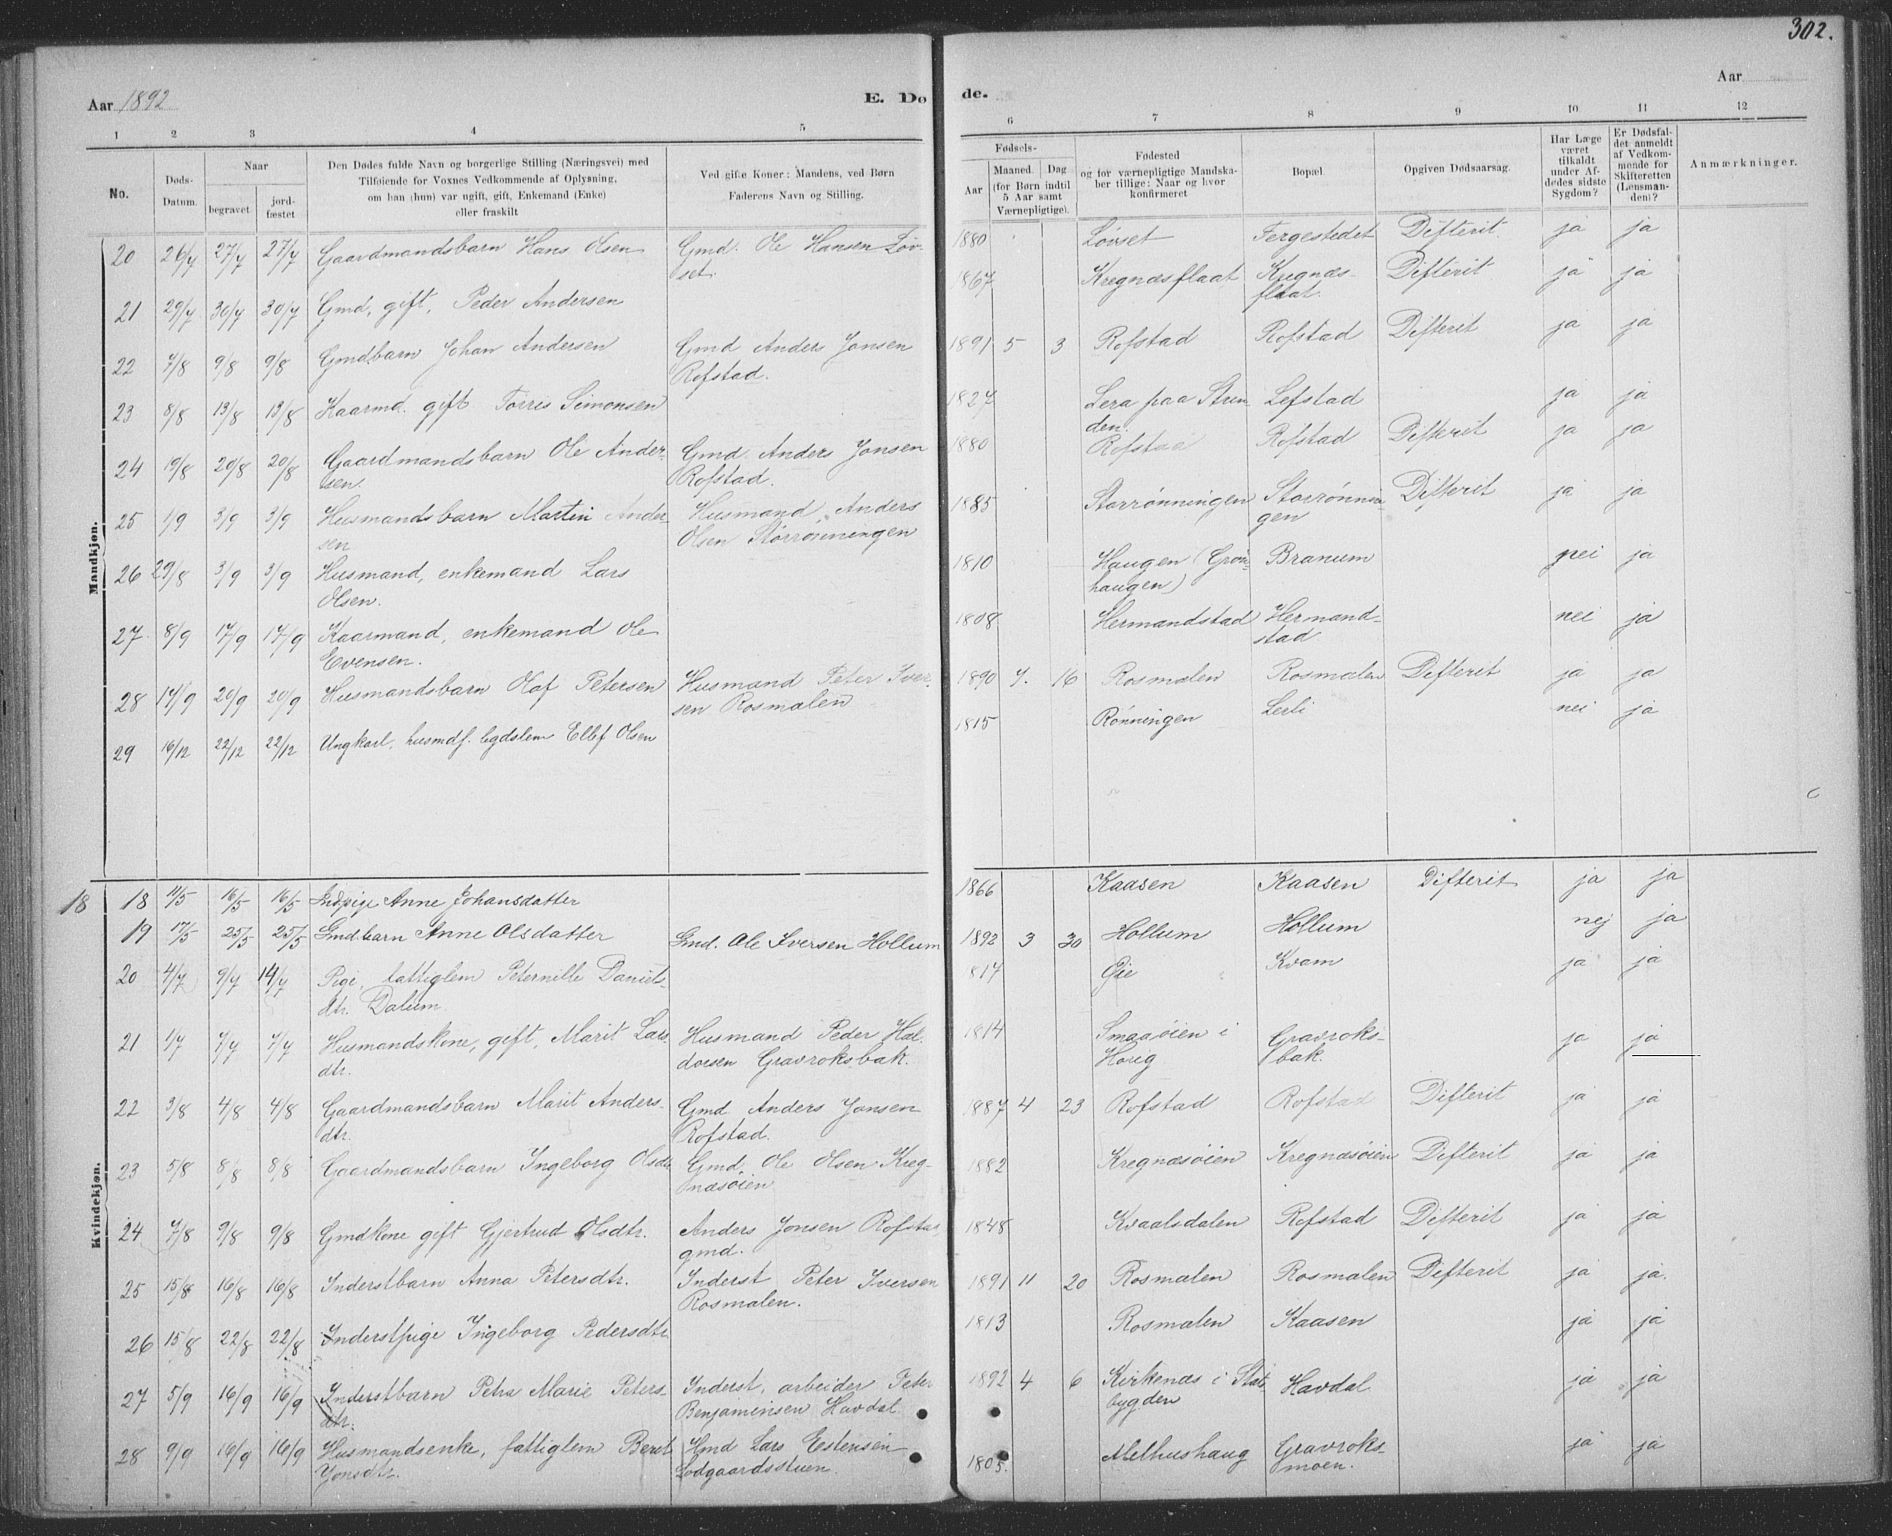 302.
Aar 1892
E. Dø
de.
Aar
1 2 3 4 5 6 7 8 9 10 11 12
No.
Døds-Datum.
Naar
begravet
jord-fæstet
Den Dødes fulde Navn og borgerlige Stilling (Næringsvei) med
Tilføiende for Voxnes Vedkommende af Oplysning,
om han (hun) var ugift, gift, Enkemand (Enke)
eller fraskilt
Ved gifte Koner: Mandens, ved Børn
Faderens Navn og Stilling.
Fødsels-
Aar
Maaned. Dag
(for Børn indtil
5 Aar samt
Værnepligtige).
Fødested
og for værnepligtige Mandska-
ber tillige: Naar og hvor
konfirmeret
Bopæl
Opgiven Dødsaarsag.
Har Læge
været
tilkaldt
under Af-
dødes sidste
Sygdom?
Er Dødsfal-
det anmeldt
af Vedkom-
mende for
Skifteretten
(Lensman-
den)?
Anmærkninger.
Mandkjøn.
20 26/7 27/7 27/7 Gaardmandsbarn Hans Olsen Gmd. Ole Hansen Løv- 1880 Løvset Fergestedet Difterit. ja ja
set.
21 29/7 30/7 30/7 Gmd, gift, Peder Andersen 1867 Kregnæsflaat Kregnæs- Difterit ja ja
flaat.
22 7/8 9/8 9/8 Gmdbarn Johan Andersen Gmd Anders Jonsen 1891 5 3 Rofstad Rofstad Difterit ja ja
Rofstad.
23 8/8 13/8 13/8 Kaarmd. gift Torris Simonsen 1827 Lera paa Strin- Lefstad ja ja
den.
24 19/8 20/8 20/8 Gaardmandsbarn Ole Ander- Gmd. Anders Jonsen 1880 Rofstad Rofstad Difterit ja ja
sen. Rofstad.
25 1/9 3/9 3/9 Husmandsbarn Martin Ander- Husmand, Anders 1885 Storrønningen Storrønnin- Difterit ja ja
sen Olsen Storrønningen gen
26 29/8 3/9 3/9 Husmand, enkemand Lars 1810 Haugen (Grøn- Branum nei ja
Olsen. haugen)
27 8/9 17/9 17/9 Kaarmand, enkemand Ole 1808 Hermandstad Hermand- nei ja
Evensen. stad
28 14/9 20/9 20/9 Husmandsbarn Olaf Petersen Husmand Peter Iver- 1890 7. 16 Rosmælen Rosmælen Difterit ja ja
sen Rosmælen
29 16/12 22/12 22/12 Ungkarl, husmdf. lægdslem Ellef Olsen 1815 Rønningen Lerli nei ja
Kvindekjøn.
18 18 11/5 16/5 16/5 Indpige Anne Johansdatter 1866 Kaasen Kaasen Difterit ja ja
19 17/5 25/5 25/5 Gmdbarn Anne Olsdatter Gmd. Ole Iversen Hollum 1892 3 30 Hollum Hollum nej ja
20 4/7 9/7 14/7 Pige, fattiglem Peternille Daniels- 1817 Øie Kvam ja ja
dtr. Dalum
21 1/7 7/7 7/7 Husmandskone, gift, Marit Lars- Husmand Peder Hal- 1814 Smaaøien i Gravroks- ja ja
dtr. dorsen Gravroksbak. Houg bak.
22 3/8 4/8 4/8 Gaardmandsbarn Marit Anders- Gmd Anders Jonsen 1887 4 23 Rofstad Rofstad Difterit ja ja
dtr. Rofstad.
23 5/8 8/8 8/8 Gaardmandsbarn Ingeborg Olsdt. Gmd. Ole Olsen Kreg- 1882 Kregnæsøien Kregnæsøien Difterit ja ja
næsøien
24 7/8 9/8 9/8 Gmdkone gift Gjertrud Olsdtr. Anders Jonsen Rofstad, 1848 Kvaalsdalen Rofstad Difterit ja ja
gmd.
25 15/8 16/8 16/8 Inderstbarn Anna Petersdtr. Inderst Peter Iversen 1891 11 20 Rosmælen Rosmælen Difterit ja ja.
Rosmælen.
26 15/8 22/8 22/8 Inderstpige Ingeborg Pedersdtr 1813 Rosmælen Kaasen ja ja
27 5/9 16/9 16/9 Inderstbarn Petra Marie Peters- Inderst, arbeider Peter 1892 4 6 Kirkenæs i Stads- Havdal ja ja
dtr. Benjaminsen Havdal bygden
28 9/9 16/9 16/9 Husmandsenke, fattiglem Berit Hmd Lars Estensen 1805. Melhushaug Gravroks- ja ja
Jonsdtr. Lodgaardsstuen. moen.